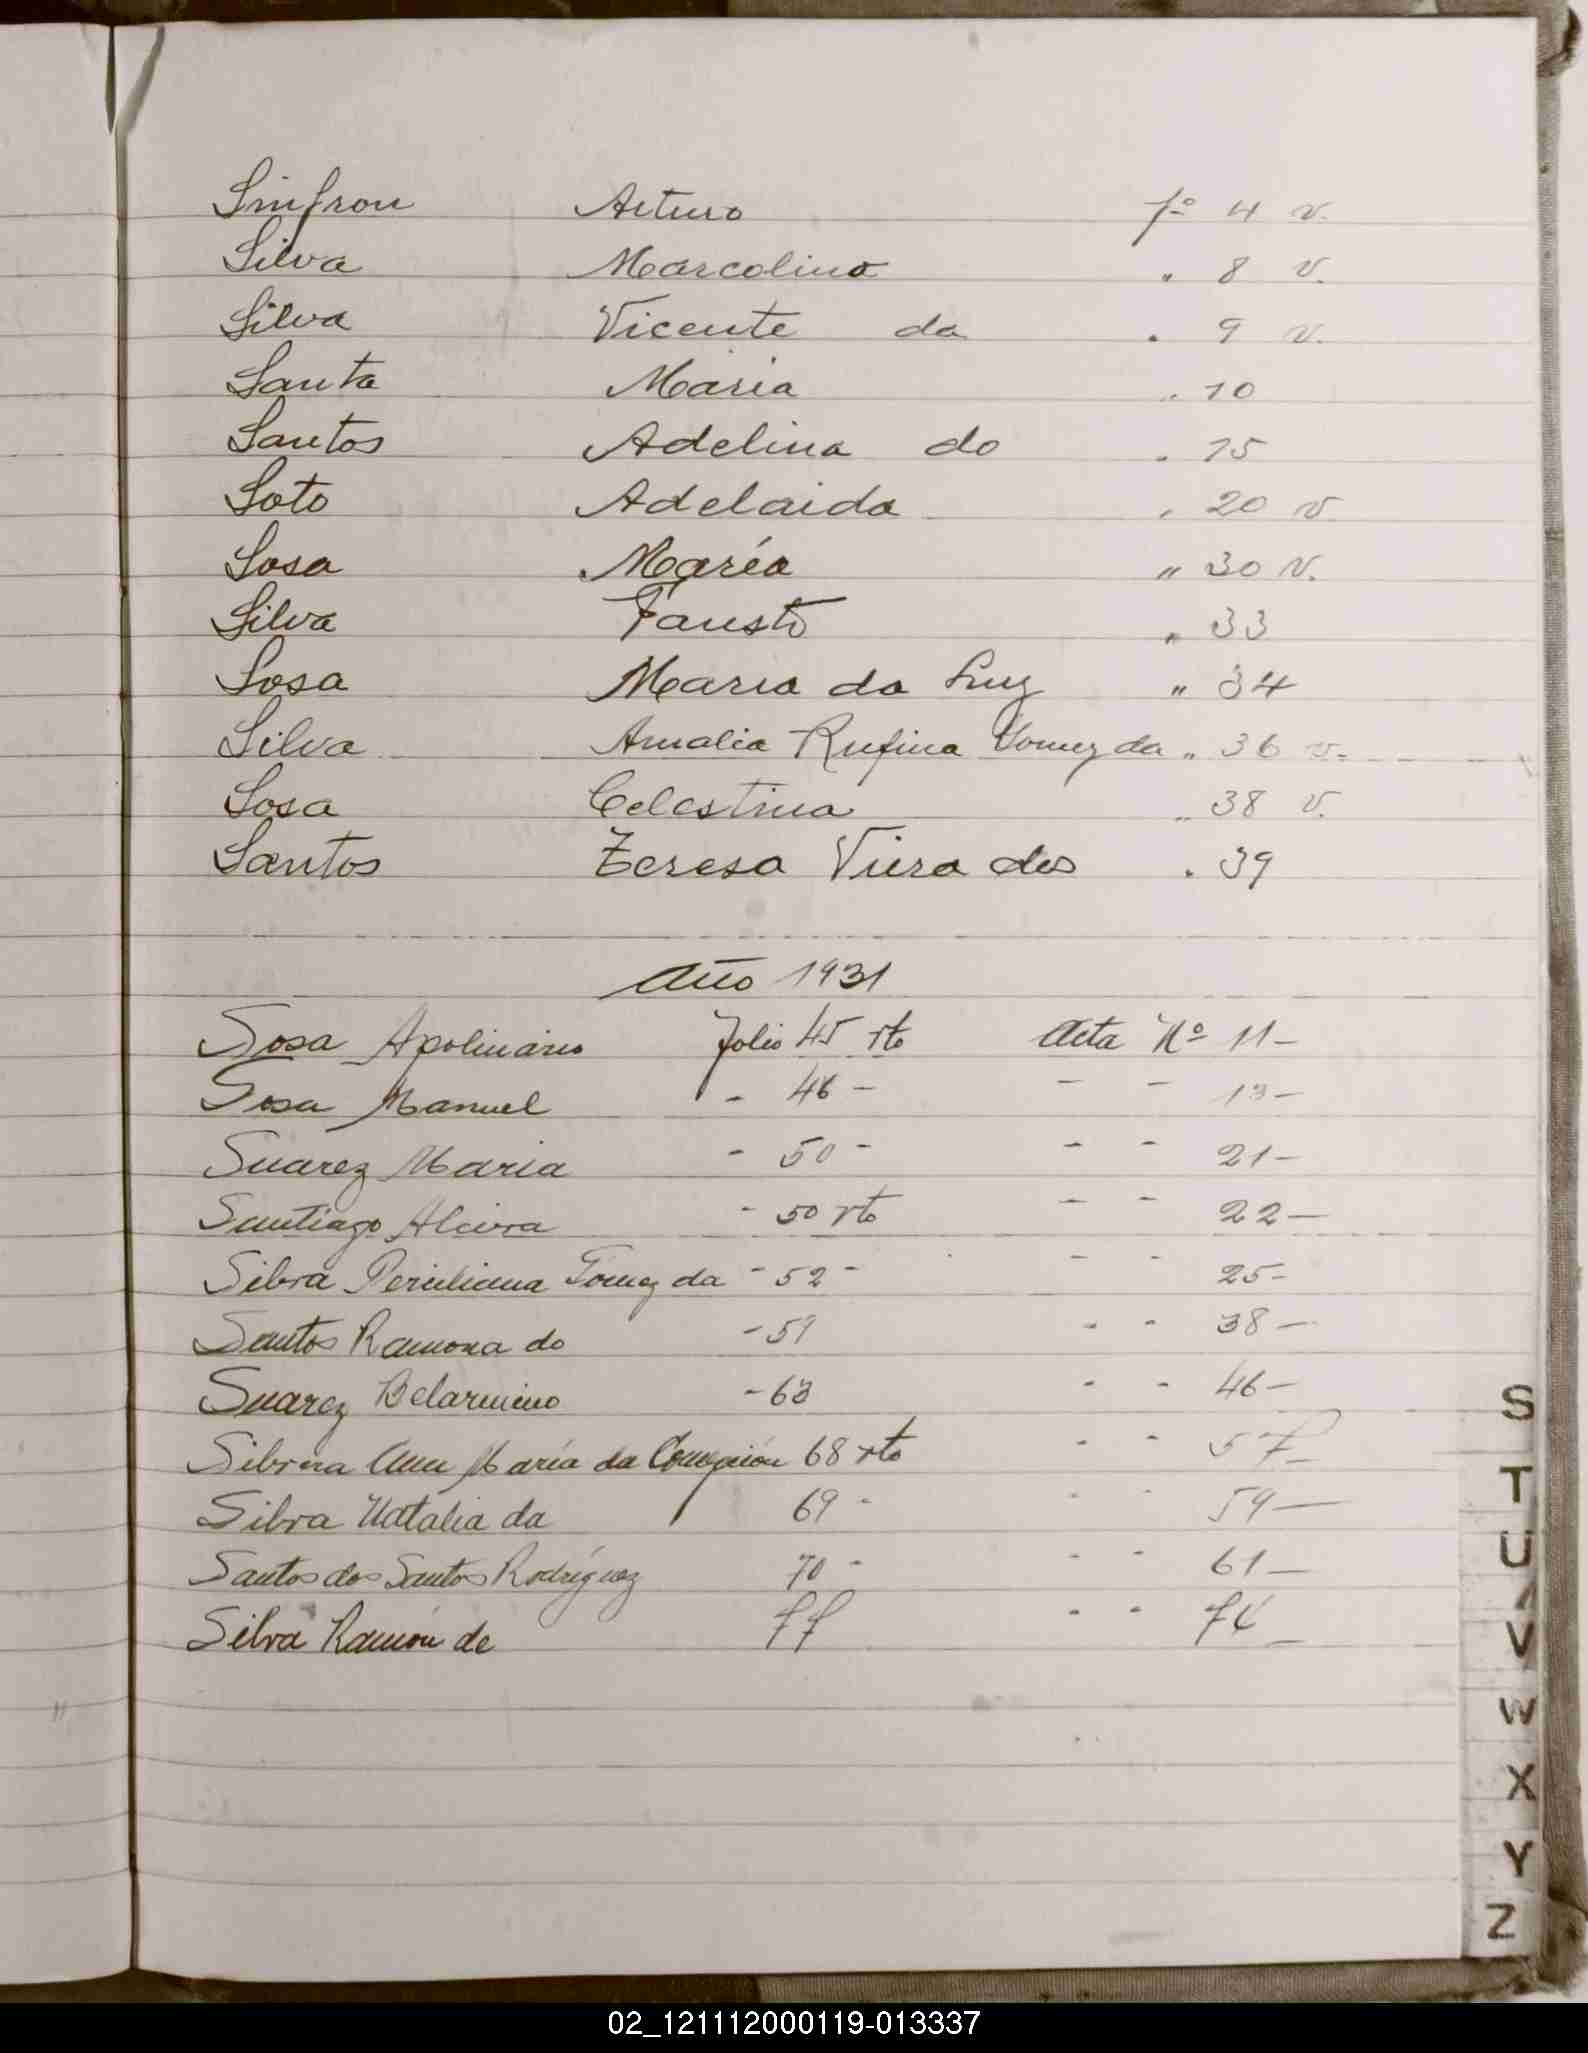 Sinfron Arturo fº 4 v.
Silva Marcolino " 8 v.
Silva Vicente da " 9 v.
Santa Maria " 10
Santos Adelina do " 15
Soto Adelaida " 20 v
Sosa María " 30 v.
Silva Fausto " 33
Sosa Maria da Luz " 34
Silva Amalia Rufina Gomez da " 36 v.
Sosa Celestina " 38 v.
Santos Teresa Viera dos " 39
Año 1931
Sosa Apolinario Folio 45 vto Acta Nº 11-
Sosa Manuel - 46 - - - 13-
Suarez Maria - 50 - - - 21-
Santiago Alcira - 50 vto - - 22-
Silva Gomez da - 52 - - - 25-
Santos Ramona do - 59 - - 38-
Suarez Belarmino - 63 - - 46-
Ana María da Concepción 68 vto - - 57-
Silva Natalia da 69 - - - 59-
Santos dos Santos Rodríguez 70 - - - 61-
Silva Ramón de 77 - - 74-
S
T
U
V
W
X
Y
Z
02_121112000119-013337